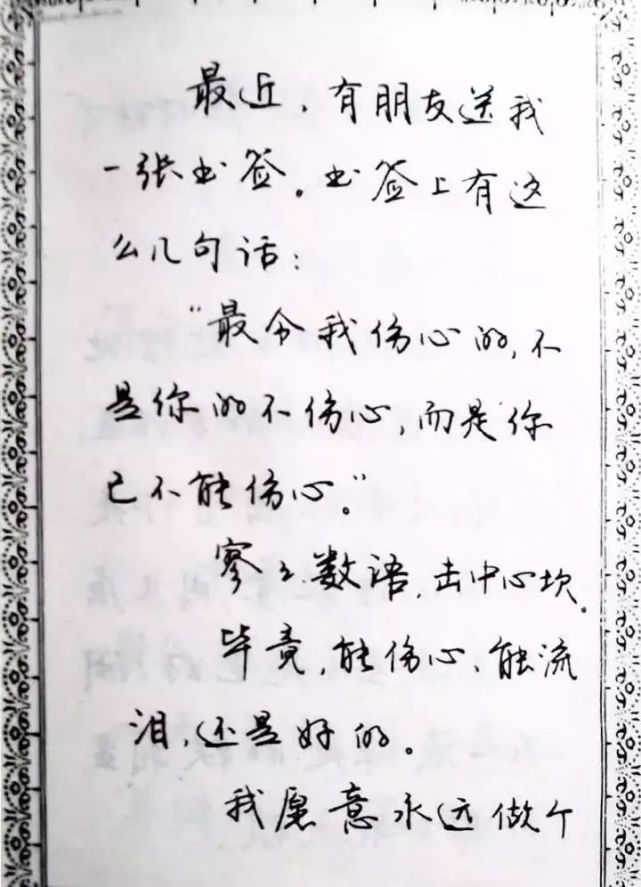 最近，有朋友送我
一张书签。书签上有这
么几句话：
“最令我伤心的，不
是你的不伤心，而是你
已不能伤心。”
寥寥数语，击中心坎。
毕竟，能伤心，能流
泪，还是好的。
我愿意永远做个